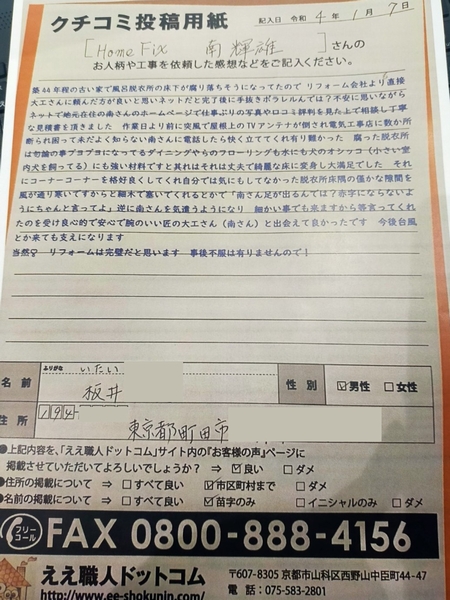 クチコミ投稿用紙
記入日 令和 4年 1月 7日
[ HomeFix 南 輝雄 ]さんの
お人柄や工事を依頼した感想などをご記入ください。
築44年程の古い家で風呂脱衣所の床下が腐り落ちそうになってたので リフォーム会社より直接
大工さんに頼んだ方が良いと思いネットだと完了後に手抜きボラレルんでは?不安に思いながら
ネットで地元在住の南さんのホームページで仕事ぶりの写真や口コミ評判を見た上で相談し丁寧
な見積書を頂きました 作業日より前に突風で屋根上のTVアンテナが倒され電気工事店に数か所
断られ困って未だよく知らない南さんに電話したら快く立ててくれ有り難かった 腐った脱衣所
は勿論の事ブヨブヨになってるダイニングやらのフローリングも水にも犬のオシッコ(小さい室
内犬を飼ってる)にも強い材料ですと其れはそれは丈夫で綺麗な床に変身し大満足でした それ
にコーナーコーナーを格好良くしてくれ自分では気にもしてなかった脱衣所床隅の僅かな隙間を
風が通り寒いですからと細木で塞いでくれるとかで「南さん足が出るんでは?赤字にならないよ
うにちゃんと言ってよ」逆に南さんを気遣うようになり 細かい事でも来ますから等言ってくれ
たのを受け良心的で安心で腕のいい匠の大工さん(南さん)と出会えて良かったです 今後台風
とか来ても支えになります
当然♀ リフォームは完璧だと思います 事後不服は有りませんので!
ふりがな いたい
名前 板井
性別 ☑男性 □女性
194
住所 東京都町田市
●上記内容を、「ええ職人ドットコム」サイト内の『お客様の声』ページに
掲載させていただいてよろしいでしょうか? ⇒ ☑良い □ダメ
●住所の掲載について ⇒ □すべて良い ☑市区町村まで □ダメ
●名前の掲載について ⇒ □すべて良い ☑苗字のみ □イニシャルのみ □ダメ
フリーコール FAX 0800-888-4156
ええ職人ドットコム
http://www.ee-shokunin.com/
〒607-8305 京都市山科区西野山中臣町44-47
電話:075-583-2801